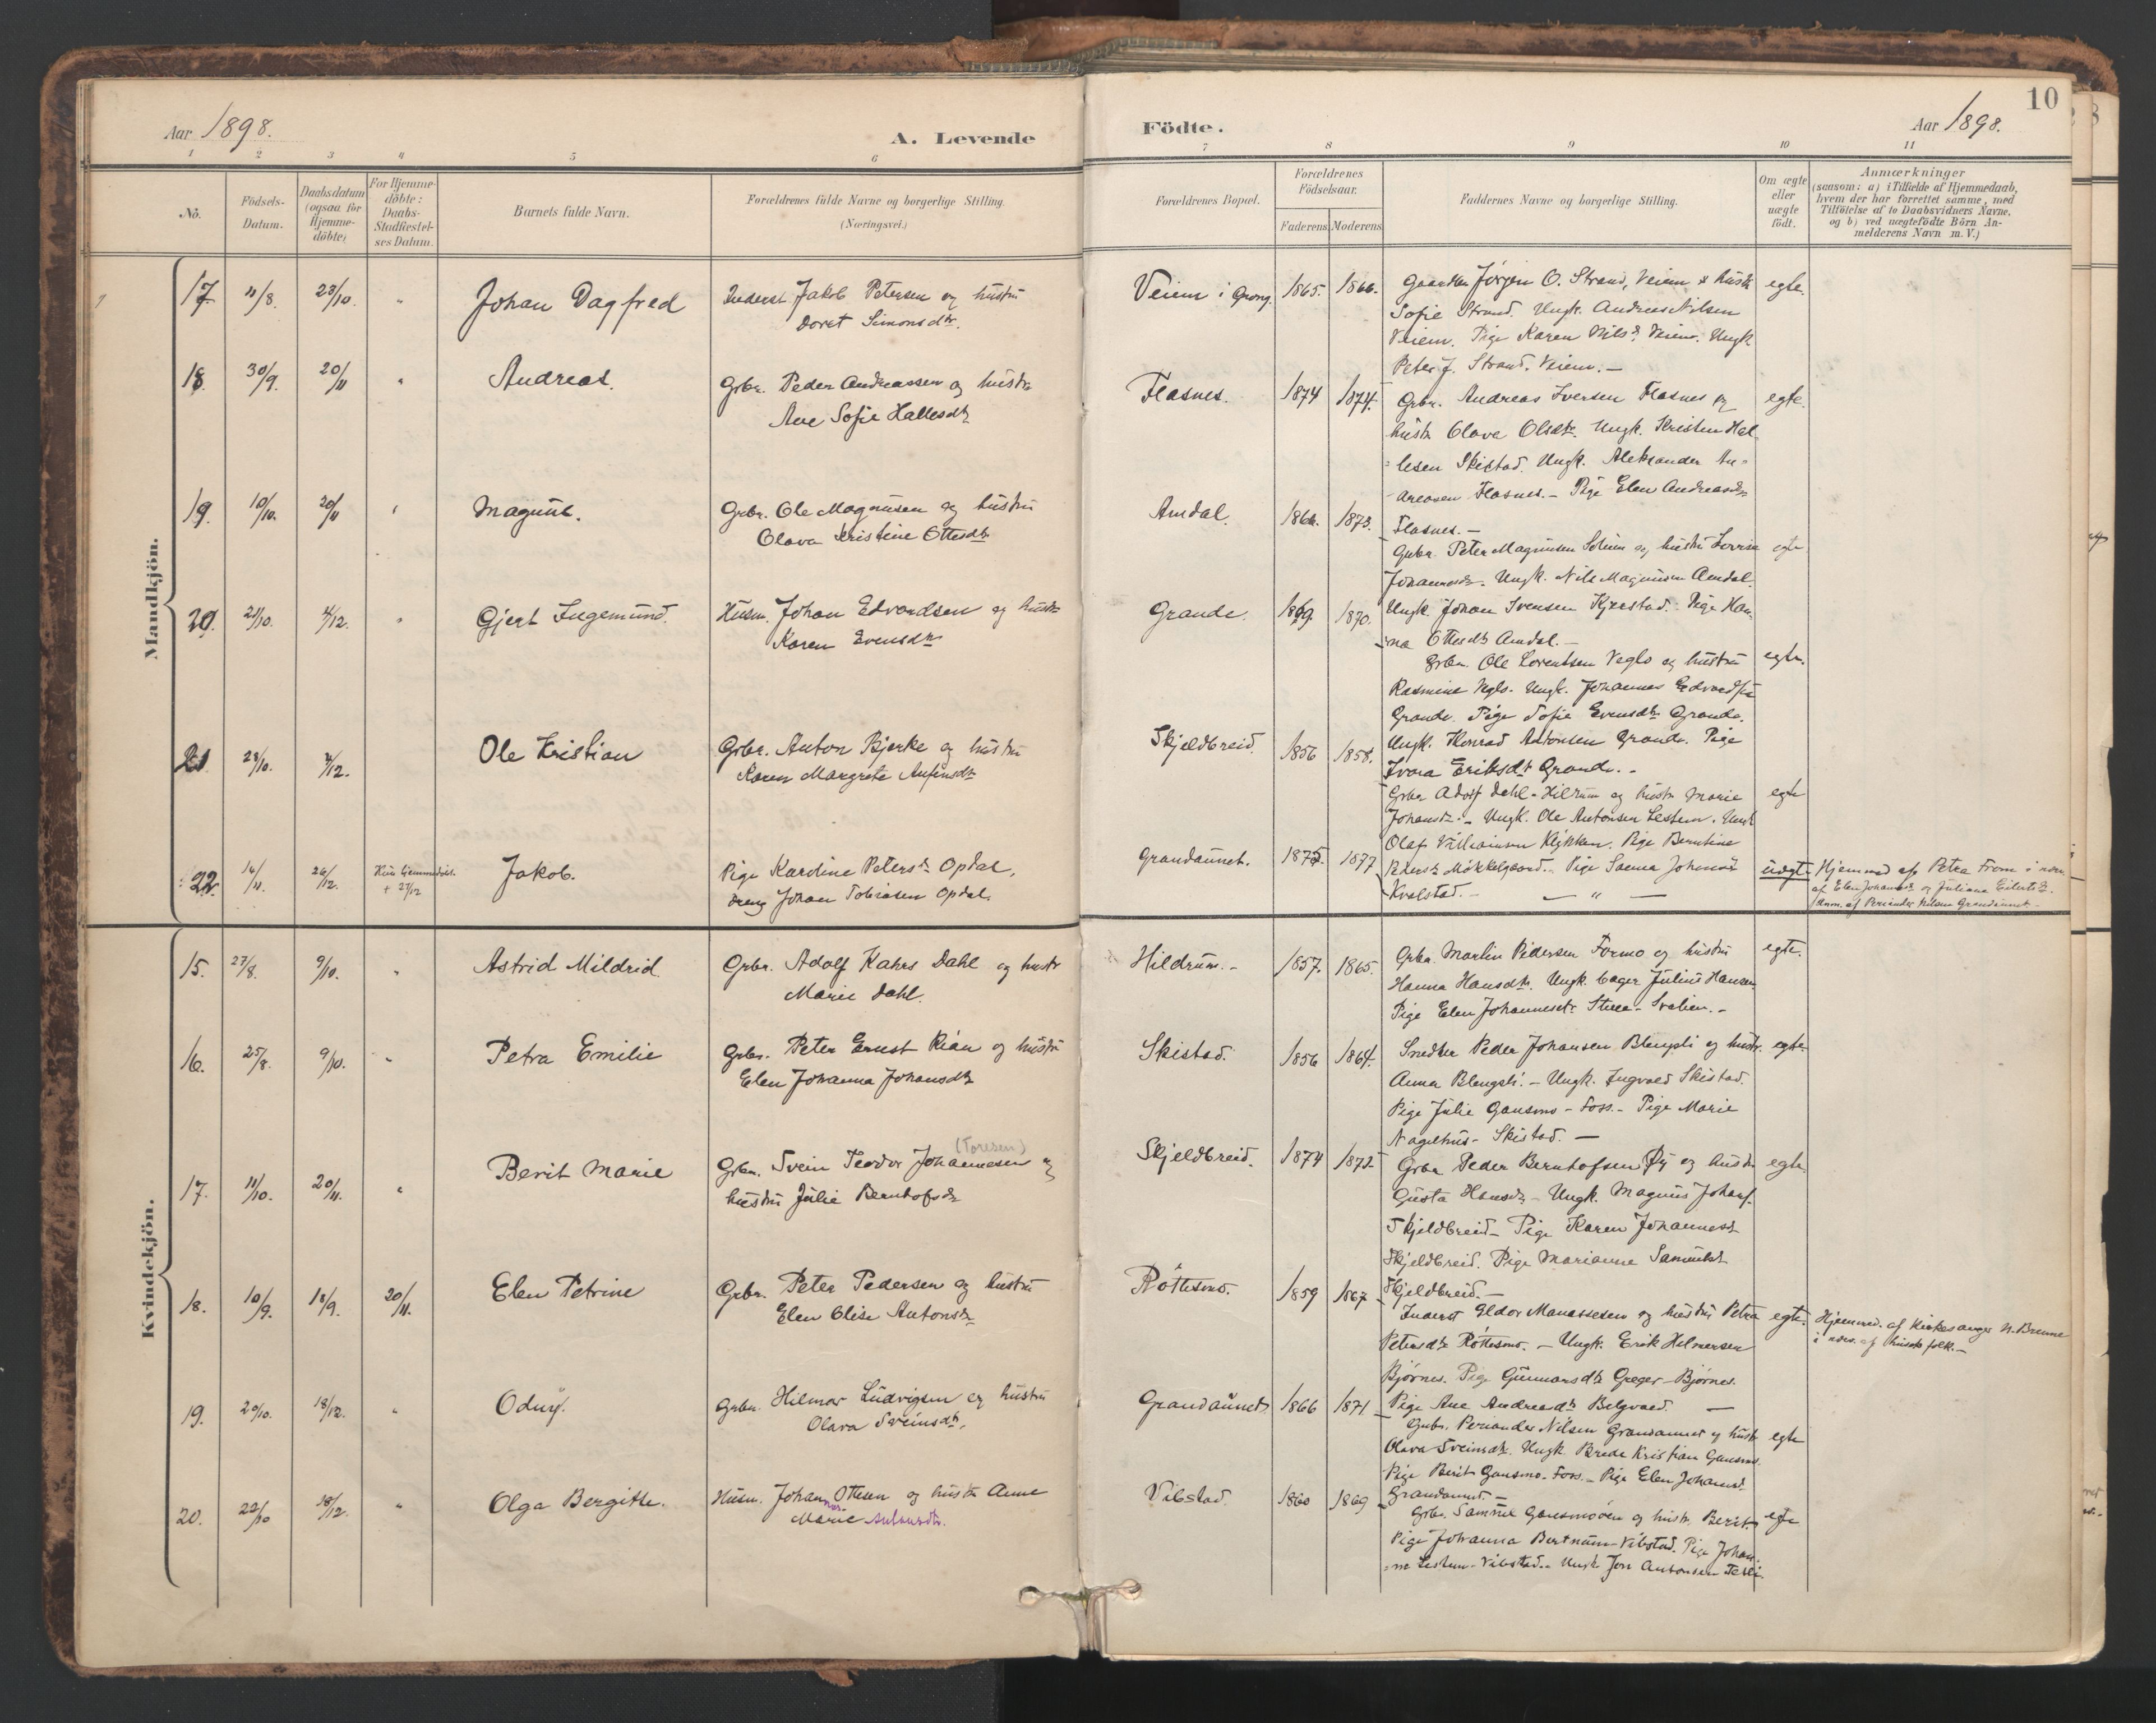 Aar 1898.
A. Levende
1 2 3 4 5 6
Nô.
Födsels-Datum.
Daabsdatum (ogsaa for Hjemme-döbte)
For Hjemme-döbte: Daabs-Stadfæstel-ses Datum.
Barnets fulde Navn.
Forældrenes fulde Navne og borgerlige Stilling.
(Næringsvei.)
Födte.
Aar 1898.
10
7 8 9 10 11
Forældrenes Bopæl.
Forældrenes Födselsaar.
Faderens Moderens
Faddernes Navne og borgerlige Stilling.
Om ægte eller uægte födt.
Anmærkninger
(saasom: a) i Tilfælde af Hjemmedaab,
hvem der har forrettet samme, med
Tilföielse af to Daabsvidners Navne,
og b) ved uægtefödte Börn An-
melderens Navn m. V.)
Mandkjön.
17. 11/8. 23/10. " Johan Dagfred
Inderst Jakob Petersen og hustru
Doret Simonsdtr.
Veiem i Grong. 1865. 1866.
Gaardm. Jørgen O. Strand, Veiem & hustr
Sofie Strand. Ungk. Andreas Nilsen
Veiem. Pige Karen Nilsd. Veiem. Ungk.
Peter J. Strand. Veiem. —
egte.
18. 30/9. 20/11 " Andreas.
Grbr. Peder Andreassen og hustru
Ane Sofie Hallesdtr
Flasnes. 1874 1874.
Grbr. Andreas Iversen Flasnes og
hustr. Olava Olsdtr. Ungk. Kristen Hal-
lesen Skistad. Ungk. Aleksander An-
dreasen Flasnes. — Pige Elen Andreasdtr
Flasnes. —
egte.
19. 10/10. 20/11 " Magnus.
Grbr. Ole Magnusen og hustru
Olava Kristine Ottesdtr
Amdal. 1866. 1873.
Grbr. Peter Magnusen Solum og hustru Lovise
Johannesdtr. Ungk. Nils Magnusen Amdal.
Ungk. Johan Svensen Kjærstad. Pige Han-
na Ottesdtr Amdal. —
egte
20. 21/10. 4/12. " Gjert Ingemund.
Husm. Johan Edvardsen og hustr
Karen Evensdtr
Grande. 1869. 1870.
Grbr. Ole Lorentsen Veglo og hustru
Rasmine Veglo. Ungk. Johannes Edvardsen
Grande. Pige Sofie Evensdtr Grande.
Ungk. Konrad Antonsen Grande. Pige
Ivara Eriksdtr Grande. -
egte.
21 23/10. 4/12. Ole Kristian
Grbr. Anton Bjerke og hustru
Karen Margrete Anfinsdtr
Skjeldbreid. 1856 1858.
Grbr Adolf Dahl - Hildrum og hustr Marie
Johansdtr. - Ungk. Ole Antonsen Lestum. Ungk
Olaf Villiamsen Kjykken. Pige Berntine
Pedersdtr Møkkelgaard. Pige Saema Johansdtr
Kvalstad. -
egte
22. 14/11. 26/12. + 27/12 Jakob.
Pige Karoline Petersdtr Opdal,
dreng Johan Tobiasen Opdal.
Grandaunet. 1875. 1877
— " —
uegt.
Hjemmed. af Petra From i nærv.
af Elen Johansdtr og Juliane Eilertsdtr.
Anm. af Periander Nilsen Grandaunet -
Kvindekjön.
15. 27/8. 9/10. " Astrid Mildrid
Grbr. Adolf Kahrs Dahl og hustr
Marie Dahl.
Hildrum. - 1857. 1865.
Grbr. Martin Pedersen Formo og hustru
Hanna Hansdtr. Ungk. bager Julius Hansen
Pige Elen Johannesdtr Stuee - Svalien. -
egte.
16. 25/8. 9/10. " Petra Emilie
Grbr. Peter Ernst Rian og hustru
Elen Johanna Johansdtr
Skistad. 1856 1864.
Snedker Peder Johansen Blengsli og hustr.
Anna Blengsli. - Ungk. Ingvald Skistad.
Pige Julie Gansmo - Foss. - Pige Marie
Nagelhus - Skistad. —
egte
17. 11/10. 20/11. " Berit Marie
(Toresen)
Grbr. Svein Teodor Johannesen og
hustru Julie Bernhofsdtr
Skjeldbreid. 1874 1872
Grbr Peder Berntofsen Ry og hustr
Gusta Hansdtr - Ungk. Magnus Johans.
Skjeldbreid - Pige Karen Johannesdtr
Skjeldbreid. Pige Marianne Samuelsdtr
Skjeldbreid. —
egte
18. 10/9. 18/9. 20/11. Elen Petrine
Grbr. Peter Pedersen og hustru
Elen Elise Antonsdtr
Røttesmo. 1859 1867
Inderst Eldor Manassesen og hustru Petra
Petersdtr Røttesmo. - Ungk. Erik Helmersen
Bjørnes. Pige Gunnarsdtr Greger - Bjørnes.
Pige Ane Andreasdtr Belgvold. —
egte.
Hjemmed. af kirkesanger N. Brenne
i nærv. af husets folk. —
19. 20/10. 18/12. " Oduy.
Grbr. Hilmar Ludvigsen og hustru
Olava Sveinsdtr.
Grandaunet 1866 1871
Grbr. Periander Nilsen Grandaunet og hustr
Olava Sveinsdtr. Ungk. Brede Kristian Gansmo.
Pige Berit Gansmo - Foss. - Pige Elen Johansd.
Grandaunet. —
egte
20. 22/10 18/12. " Olga Bergitte.
Husm. Johan Ottesen og hustr Anne
Marie
Vibstad. 1860 1869
Grbr. Samuel Gansmoen og hustr. Berit.
Pige Johanna Bertnum - Vibstad. Pige Johan-
ne Lestum - Vibstad. - Ungk Jon Antonsen
egte